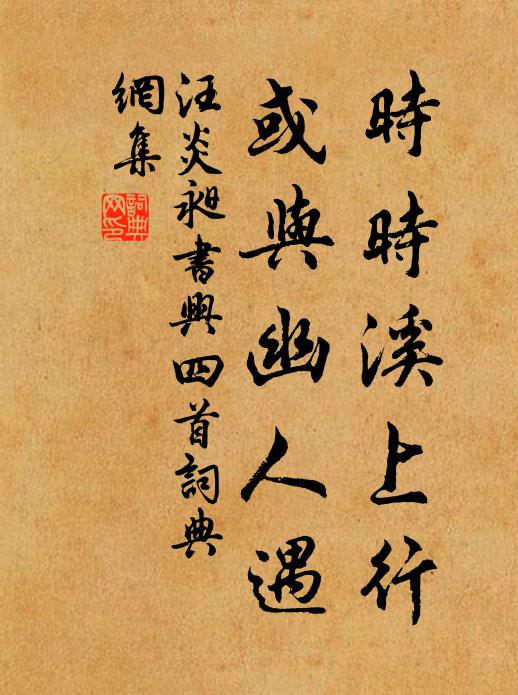 時時溪上行
或與幽人遇
汪炎昶書興四首詞典
網集
詞典
网印